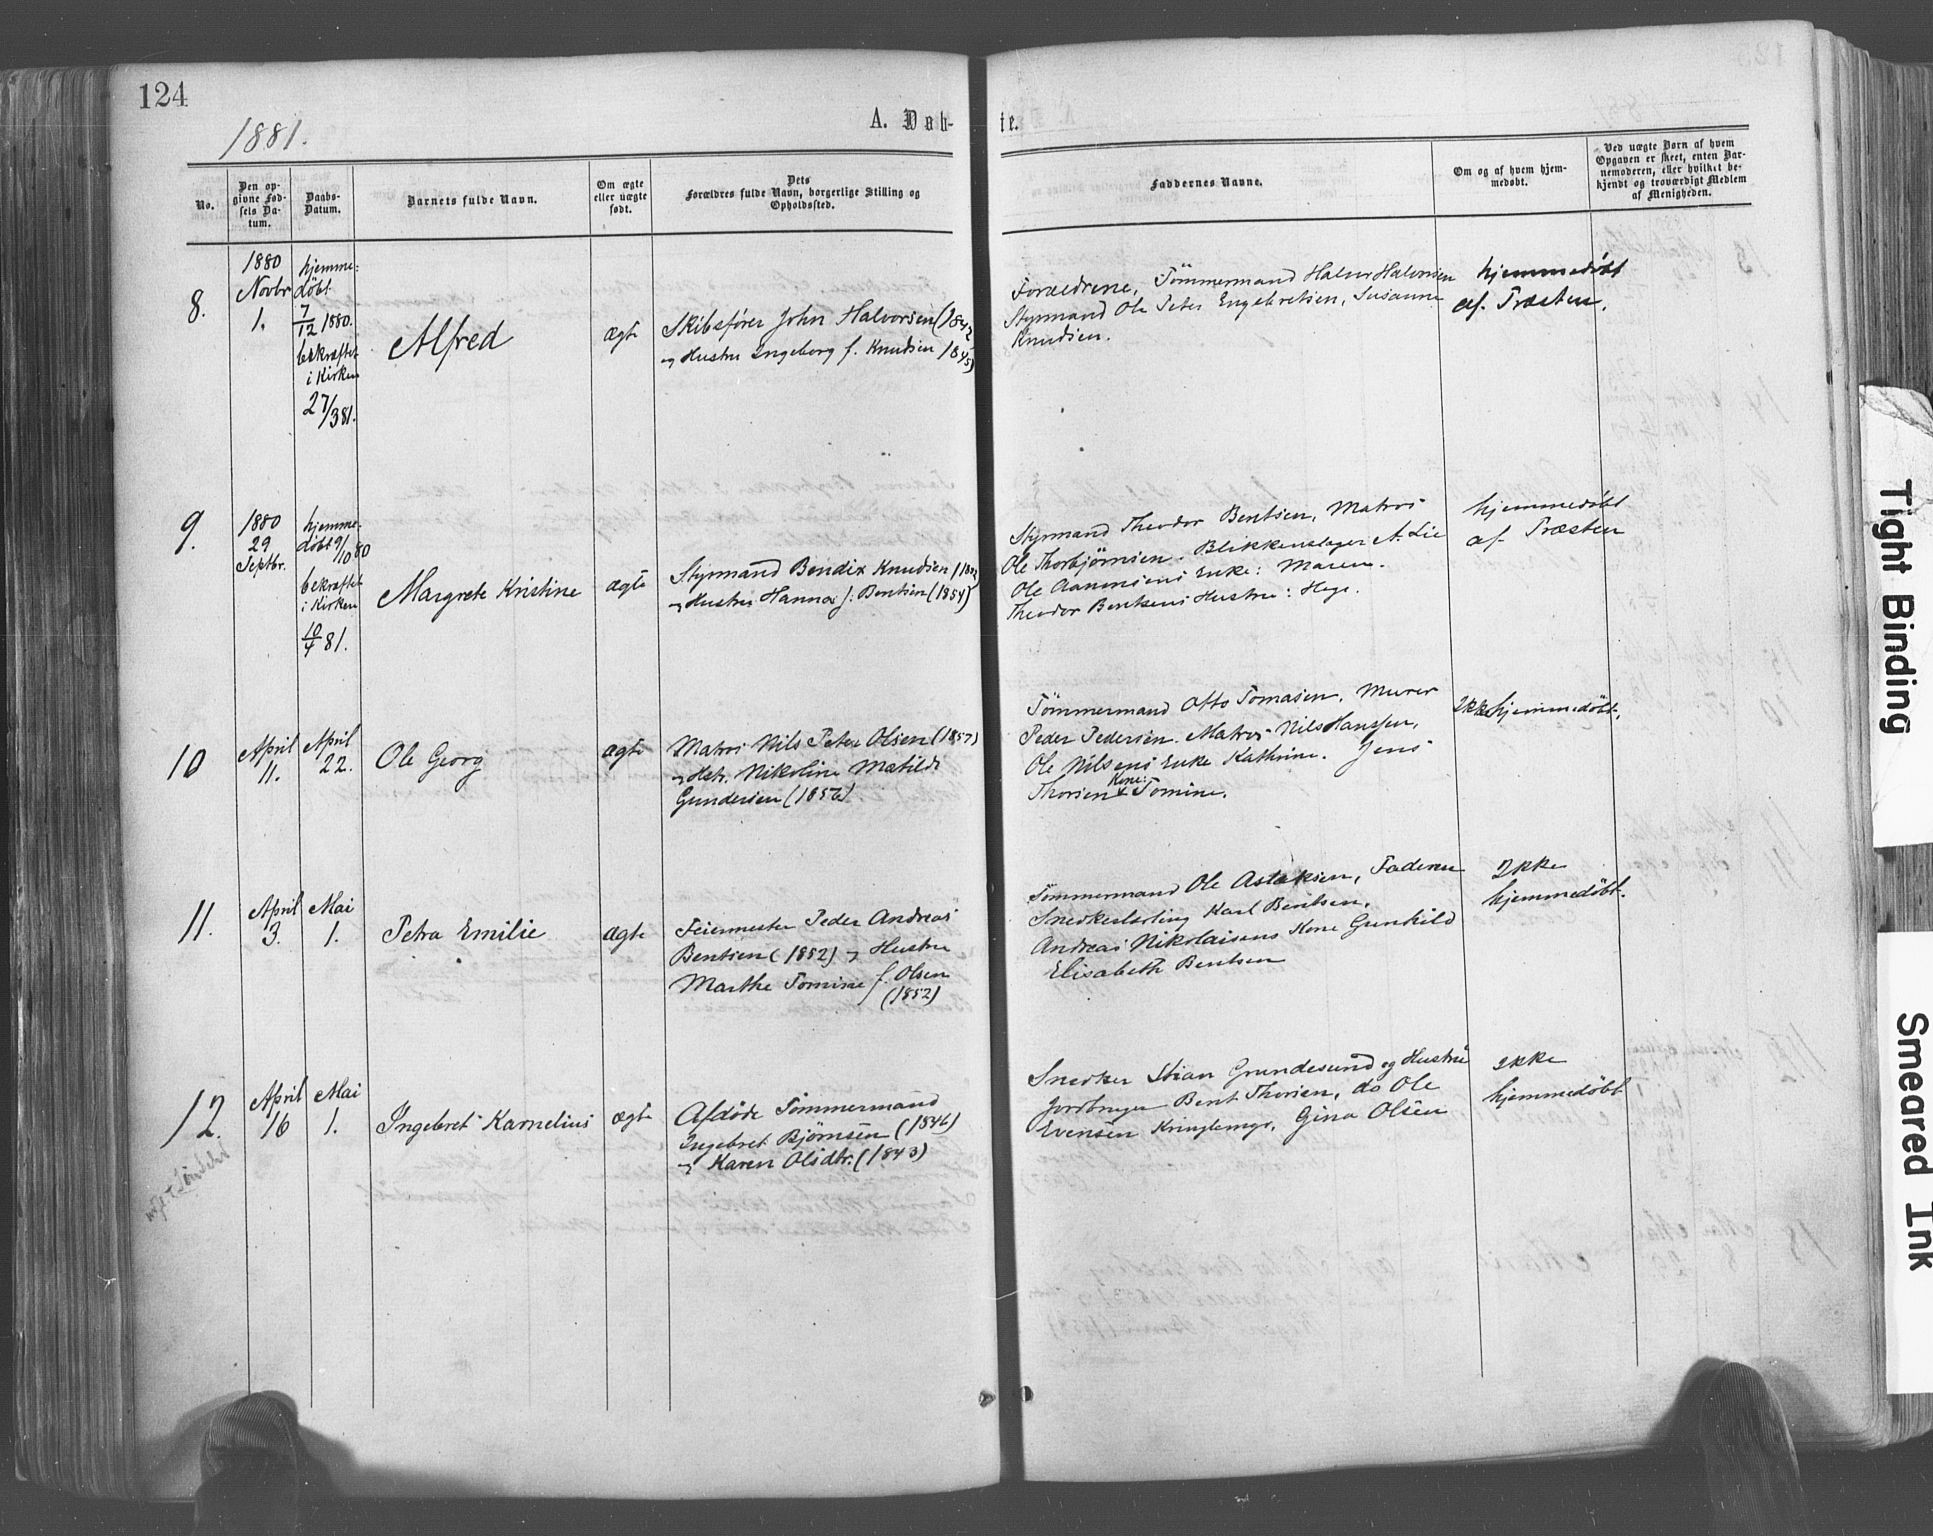 124
1881.
A. Døb-
te.
No.
Den op-
givne Fød-
sels Da-
tum.
Daabs-
Datum.
Barnets fulde Navn.
Om ægte
eller uægte
født.
Dets
Forældres fulde Navn, borgerlige Stilling og
Opholdssted.
Faddernes Navne.
Om og af hvem hjem-
medøbt.
Ved uægte Børn af hvem
Opgaven er skeet, enten Bar-
nemoderen, eller hvilket be-
kjendt og troværdigt Medlem
af Menigheden.
8.
1880
Novbr
1.
hjemme-
døbt
7/12 1880.
bekræftet
i Kirken
27/3 81.
Alfred
ægte
Skibsfører John Halvorsen (1842
og Hustru Ingeborg f. Knudsen 1845)
Forældrene, Tömmermand Halvor Halvorsen
Styrmand Ole Peter Engebretsen, Susanne
Knudsen.
hjemmedöbt
af Præsten.
9.
1880
29
Septbr.
hjemme-
döbt 9/10 80
bekræftet
i Kirken
10/4 81.
Margrete Kristine
ægte
Styrmand Bendix Knudsen
og Hustru Hanna f. Bentsen (1854)
Styrmand Theodor Bentsen, Matros
Ole Thorbjørnsen. Blikkenslager A. Lie
Ole Aanensens Enke: Maren.
Theodor Bentsens Hustru: Hege.
hjemmedöbt
af Præsten
10
April
11.
April
22.
Ole Georg
ægte
Matros Nils Peter Olsen (1857)
og Hstr. Nikoline Matilde
Gundersen (1856)
Tömmermand Otto Tomasen, Murer
Peder Pedersen. Matros Nils Hanssen,
Ole Nilsens Enke Kathrine. Jens
Thorsens Kone: Tomine.
Ikke hjemmedöbt.
11.
April
3.
Mai
1.
Petra Emilie
ægte
Feiermester Peder Andreas
Bentsen (1852) og Hustru
Marthe Tomine f. Olsen
(1852)
Tømmermand Ole Aslaksen, Faderen
Snedkerlærling Karl Bentsen,
Andreas Nikolaisens Kone Gunhild
Elisabeth Bentsen
Ikke
hjemmedöbt.
12.
April
16
Mai
1.
Ingebret Karnelius
ægte
Afdöde Tömmermand
Ingebret Bjørnsen (1846)
og Karen Olsdtr. (1843)
Snedker Stian Grundesund og Hustru
Jordbruger Bent Thorsen, do Ole
Evensen Kringlemyr, Gina Olsen
Ikke
hjemmedöbt
Tight Binding
Smeared Ink